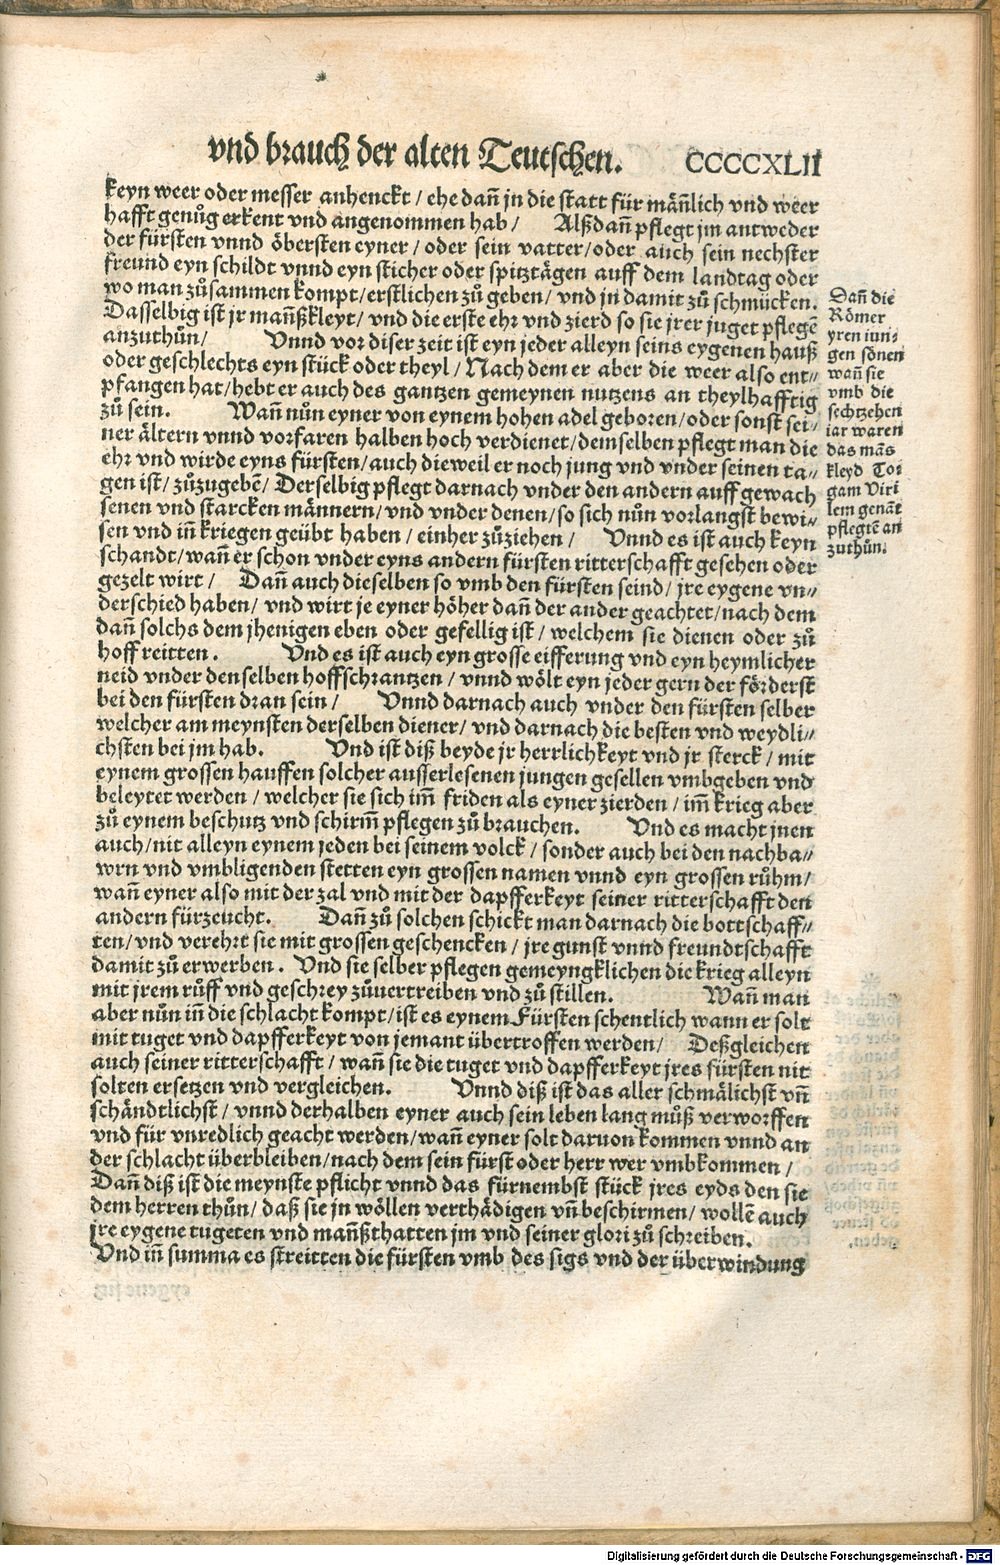 vnd brauch der alten Teutschen. CCCCXLII
keyn weer oder messer anhenckt / ehe dañ jn die statt für mäñlich vnd weer
hafft genůg erkent vnd angenommen hab / Alßdañ pflegt jm antweder
der fürsten vnnd öbersten eyner / oder sein vatter / oder auch sein nechster
freund eyn schildt vnnd eyn sticher oder spitztägen auff dem landtag oder
wo man zůsammen kompt / erstlichen zů geben / vnd jn damit zů schmücken.
Dasselbig ist jr mañßkleyt / vnd die erste ehr vnd zierd so sie jrer juget pflegē
anzuthůn / Vnnd vor diser zeit ist eyn jeder alleyn seins eygenen hauß
oder geschlechts eyn stück oder theyl / Nach dem er aber die weer also ent⸗
pfangen hat / hebt er auch des gantzen gemeynen nutzens an theylhafftig
zů sein. Wañ nůn eyner von eynem hohen adel geboren / oder sonst sei⸗
ner ältern vnnd vorfaren halben hoch verdienet / demselben pflegt man die
ehr vnd wirde eyns fürsten / auch dieweil er noch jung vnd vnder seinen ta⸗
gen ist / zůzugebē / Derselbig pflegt darnach vnder den andern auff gewach
senen vnd starcken männern / vnd vnder denen / so sich nůn vorlangst bewi⸗
sen vnd iñ kriegen geübt haben / einher zůziehen / Vnnd es ist auch keyn
schandt / wañ er schon vnder eyns andern fürsten ritterschafft gesehen oder
gezelt wirt / Dañ auch dieselben so vmb den fürsten seind / jre eygene vn⸗
derschied haben / vnd wirt je eyner höher dañ der ander geachtet / nach dem
dañ solchs dem jhenigen eben oder gefellig ist / welchem sie dienen oder zů
hoff reitten. Vnd es ist auch eyn grosse eifferung vnd eyn heymlicher
neid vnder denselben hoffschrantzen / vnnd wölt eyn jeder gern der förderst
bei den fürsten dran sein / Vnnd darnach auch vnder den fürsten selber
welcher am meynsten derselben diener / vnd darnach die besten vnd weydli⸗
chsten bei jm hab. Vnd ist diß beyde jr herrlichkeyt vnd jr sterck / mit
eynem grossen hauffen solcher ausserlesenen jungen gesellen vmbgeben vnd
beleytet werden / welcher sie sich im̃ friden als eyner zierden / im̃ krieg aber
zů eynem beschutz vnd schirm̃ pflegen zů brauchen. Vnd es macht jnen
auch / nit alleyn eynem jeden bei seinem volck / sonder auch bei den nachba⸗
wrn vnd vmbligenden stetten eyn grossen namen vnnd eyn grossen růhm /
wañ eyner also mit der zal vnd mit der dapfferkeyt seiner ritterschafft den
andern fürzeucht. Dañ zů solchen schickt man darnach die bottschaff⸗
ten / vnd verehrt sie mit grossen geschencken / jre gunst vnnd freundtschafft
damit zů erwerben. Vnd sie selber pflegen gemeyngklichen die krieg alleyn
mit jrem růff vnd geschrey zůuertreiben vnd zů stillen. Wañ man
aber nůn iñ die schlacht kompt / ist es eynem Fürsten schentlich wann er solt
mit tuget vnd dapfferkeyt von jemant übertroffen werden / Deßgleichen
auch seiner ritterschafft / wañ sie die tuget vnd dapfferkeyt jres fürsten nit
solten ersetzen vnd vergleichen. Vnnd diß ist das aller schmälichst vñ
schändtlichst / vnnd derhalben eyner auch sein leben lang můß verworffen
vnd für vnredlich geacht werden / wañ eyner solt daruon kommen vnnd an
der schlacht überbleiben / nach dem sein fürst oder herr wer vmbkommen /
Dañ diß ist die meynste pflicht vnnd das fürnembst stück jres eyds den sie
dem herren thůn / daß sie jn wöllen verthädigen vñ beschirmen / wollē auch
jre eygene tugeten vnd mañßthatten jm vnd seiner glori zů schreiben.
Vnd iñ summa es streitten die fürsten vmb des sigs vnd der überwindung
Dañ die
Römer
yren iun⸗
gen sönen
wañ sie
vmb die
sechtzehen
iar waren
das mās
kleyd To⸗
gam Viri
lem genāt
pflegtē an
zuthůn.
Digitalisierung gefördert durch die Deutsche Forschungsgemeinschaft - DFG